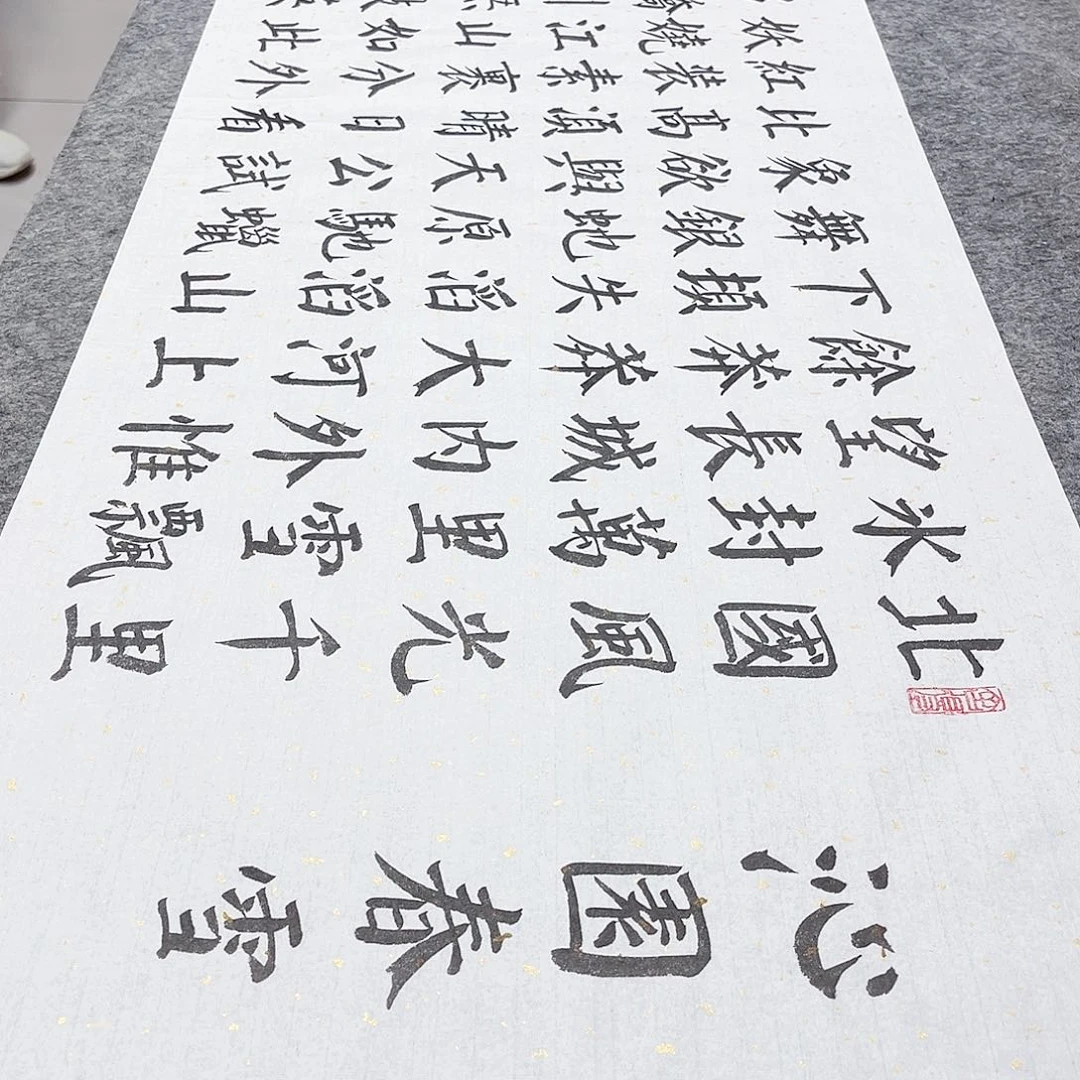 沁園春雪
北國風光千里
冰封萬里雪飄
望長城内外惟
餘莽莽大河上
下頓失滔滔山
舞銀蛇原馳蠟
象欲與天公試
比高須晴日看
紅裝素裹分外
妖嬈江山如此